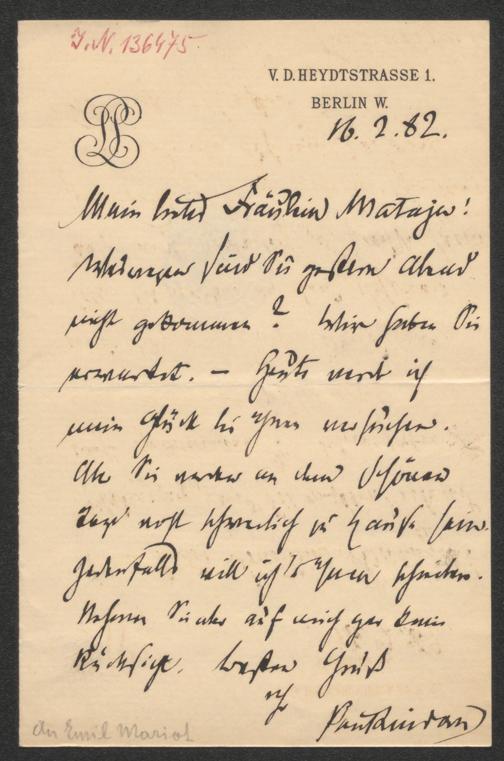 J.N. 136475
V. D. HEYDTSTRASSE 1.
BERLIN W.
16.2.82.
Mein liebes Fräulein Mataja!
Weswegen sind Sie gestern Abend
nicht gekommen? Wir haben Sie
erwartet. – Heute werd ich
mein Glück bei Ihnen versuchen.
Aber Sie werden an dem schönen
Tage wohl schwerlich zu Hause sein.
Jedenfalls will ich's Ihnen schreiben.
Nehmen Sie aber auf mich gar keine
Rücksicht. Besten Gruß
Ihr
Paul Lindau
an Emil Mariot